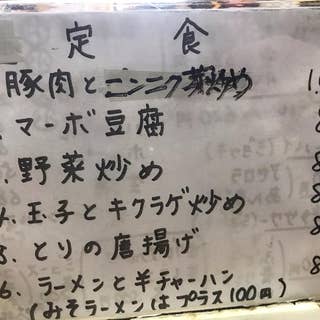 定食
豚肉とニンニク菜炒め 1.
マーボ豆腐 8
3.野菜炒め 8
4.玉子とキクラゲ炒め 8
5.とりの唐揚げ 8
6.ラーメンと半チャーハン 8
(みそラーメンはプラス100円)